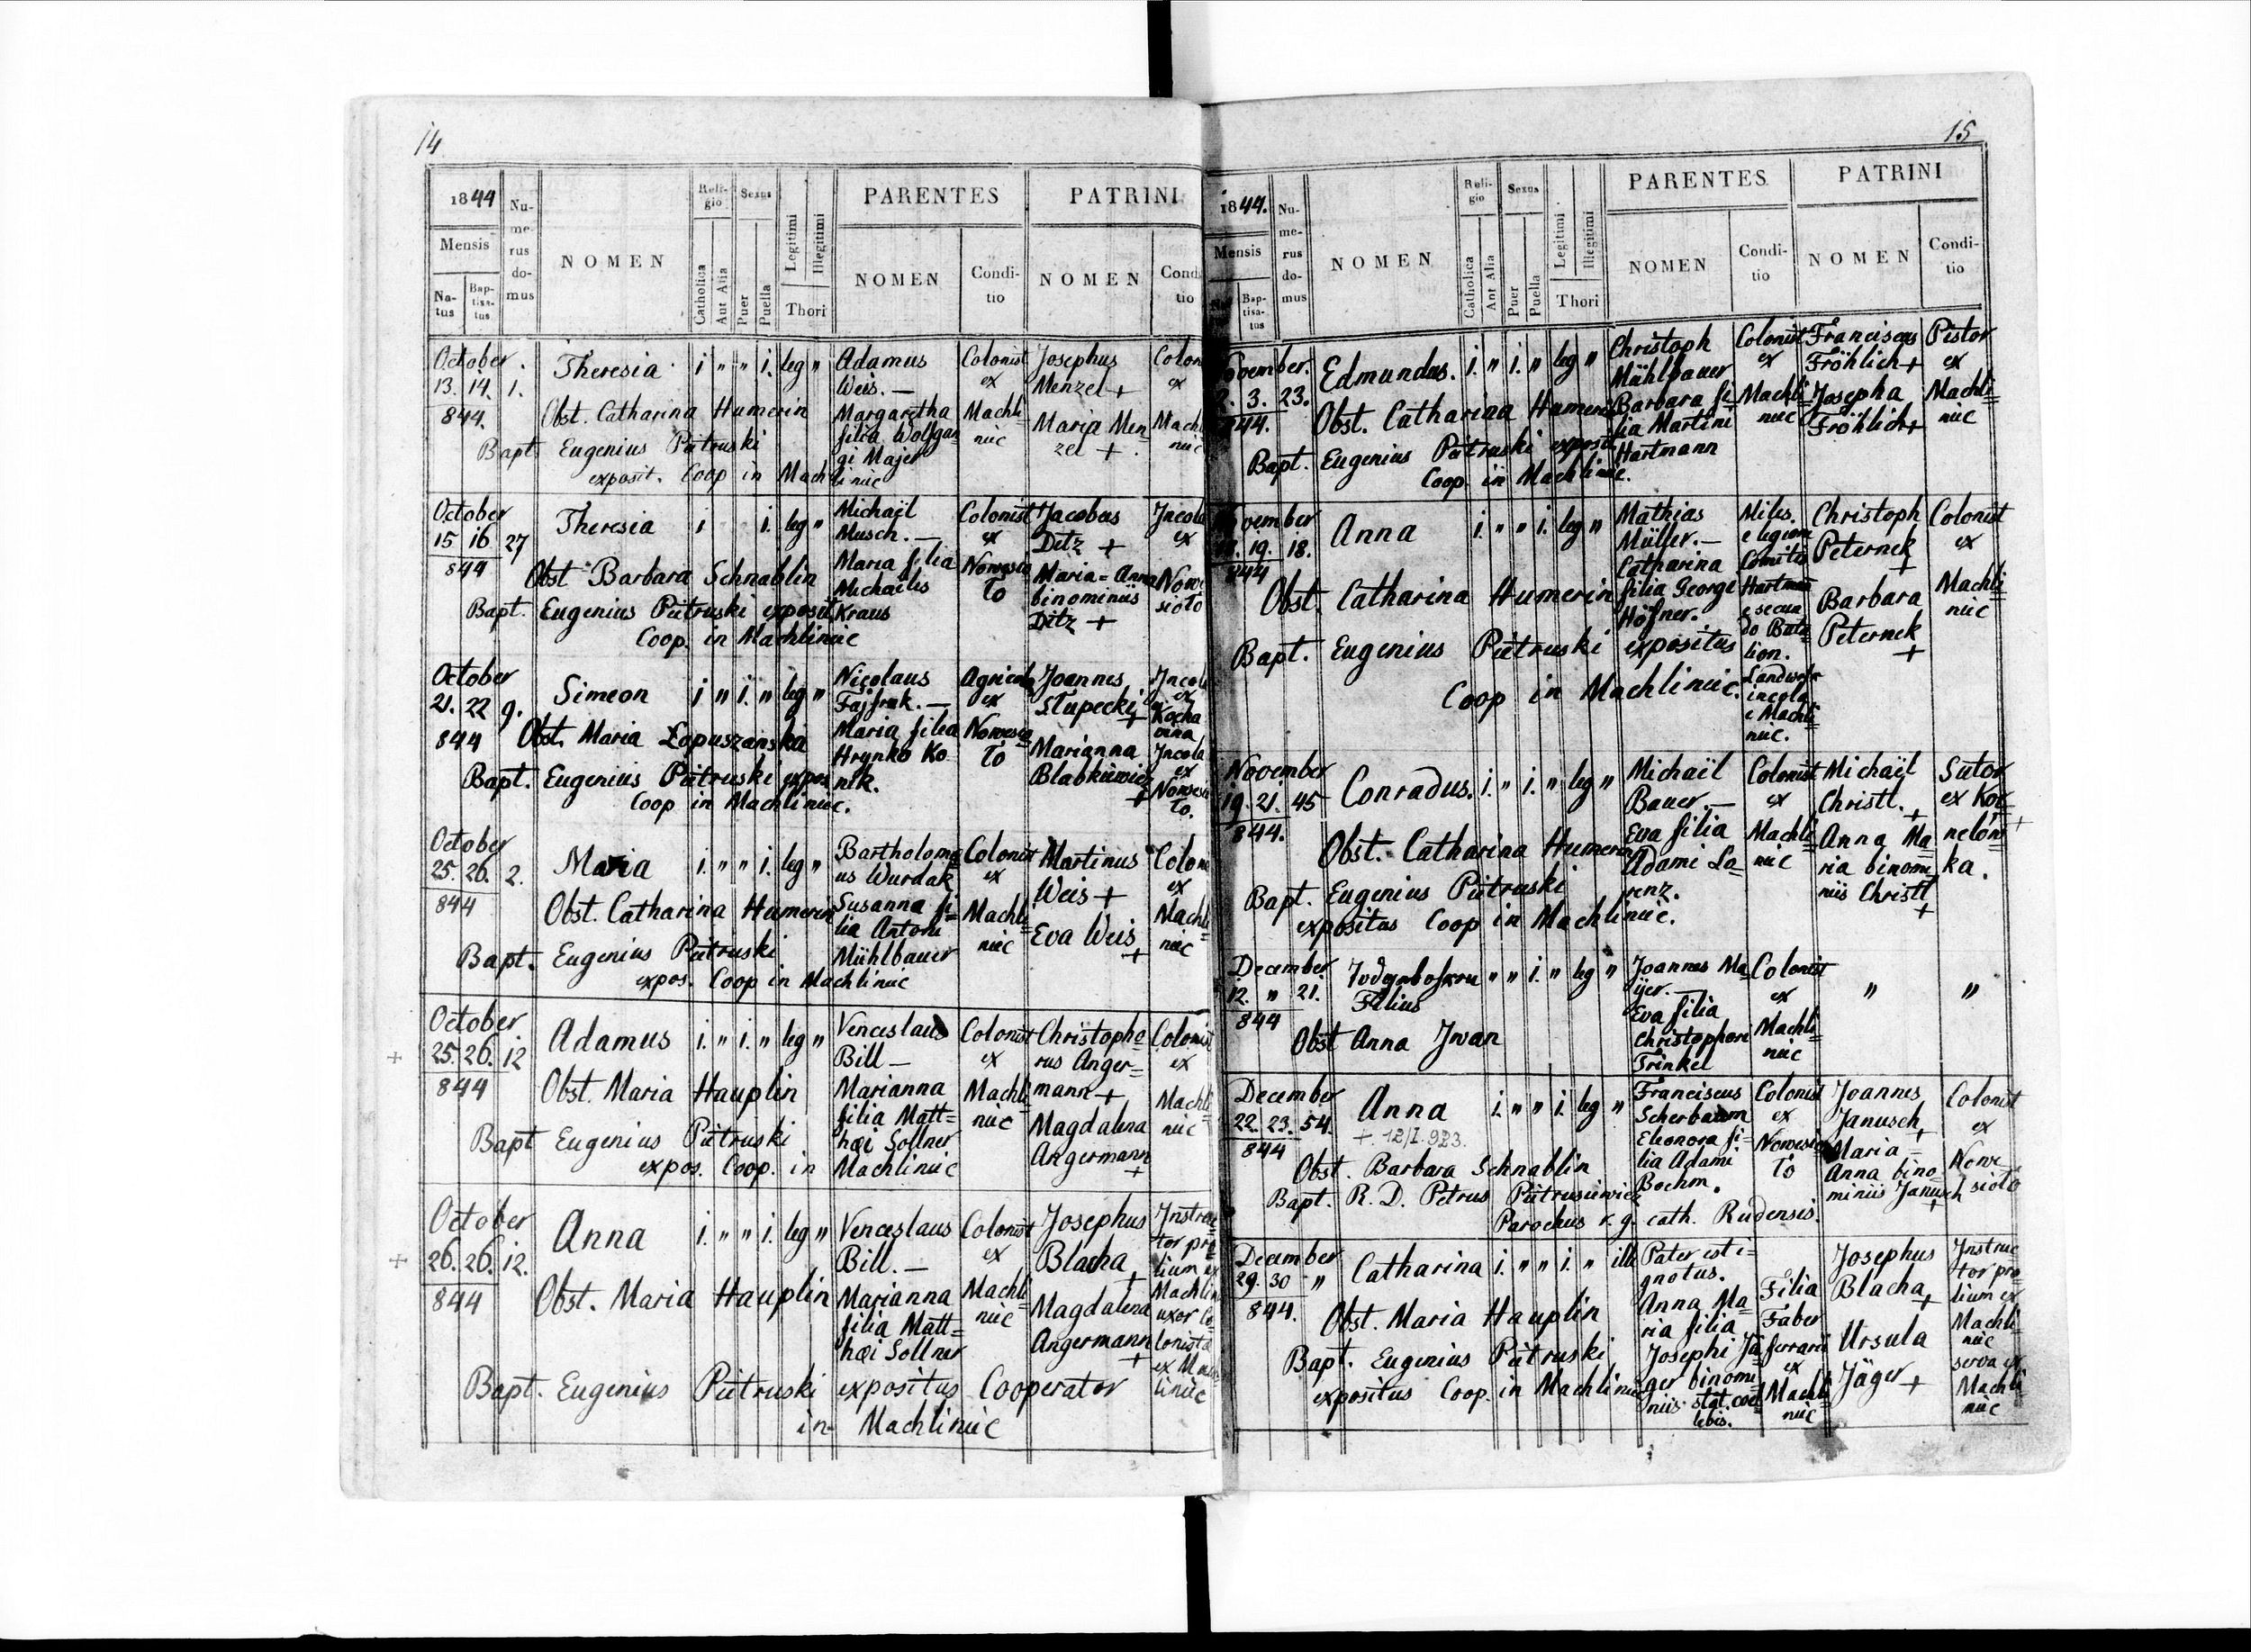 14
1844
Mensis
Na-
tus
Bap-
tisa-
tus
Nu-
me-
rus
do-
mus
NOMEN
Reli-
gio
Catholica
Aut Alia
Sexus
Puer
Puella
Legitimi
Illegitimi
Thori
PARENTES
NOMEN
Condi-
tio
PATRINI
NOMEN
Condi
tio
October
13. 14. 1.
844.
Theresia i „ „ i. leg „
Obst. Catharina Humerin
Bapt. Eugenius Pietruski
exposit. Coop in Machliniec
Adamus
Weis. —
Margaretha
filia Wolfgan
gi Majer
Colonist
ex
Machli
niec
Josephus
Menzel +
Maria Men
zel +
Colon
ex
Machl
niec
October
15 16 27
844
Theresia i i. leg „
Obst Barbara Schnablin
Bapt. Eugenius Pietruski exposit
Coop. in Machliniec
Michaël
Musch. —
Maria filia
Michaëlis
Kraus
Colonist
ex
Nowesio
to
Jacobus
Ditz +
Maria = Anna
binominiis
Ditz +
Jncola
ex
Nowe
sioto
October
21. 22 9.
844
Simeon i „ i. „ leg „
Obst. Maria Łopuszanska
Bapt. Eugenius Pietruski expos
Coop in Machliniec.
Nicolaus
Fajfrak. —
Maria filia
Hrynko Ko
nik.
Agricola
ex
Nowesio
to
Joannes
Słupecki +
Marianna
Blabkiewicz
+
Jncola
ex
Kocha
wina
Jncola
ex
Nowesio
to.
October
25. 26. 2.
844
Maria i. „ „ i. leg „
Obst. Catharina Humerin
Bapt. Eugenius Pietruski
expos. Coop in Machliniec
Bartholome
us Wurdak
Susanna fi=
lia Antoni
Mühlbauer
Colonist
ex
Machli
niec
Martinus
Weis +
Eva Weis
+
Colon
ex
Machli
niec
October
25. 26. 12
844
Adamus i. „ i. „ leg „
Obst. Maria Hauplin
Bapt Eugenius Pietruski
expos. Coop. in Machliniec
Venceslaus
Bill —
Marianna
filia Matt=
hæi Sollner
Colonist
ex
Machli
niec
Christopho
rus Anger=
mann +
Magdalena
Angermann
+
Colonist
ex
Machli
niec
October
26. 26. 12.
844
Anna i. „ „ i. leg „
Obst. Maria Hauplin
Bapt. Eugenius Pietruski expositus Cooperator
in Machliniec
Venceslaus
Bill. —
Marianna
filia Matt=
hæi Sollner
Colonist
ex
Machli
niec
Josephus
Blacha
+
Magdalena
Angermann
+
Jnstruc
tor pro
lium ex
Machlin
uxor Co
lonista
ex Mach
liniec
15
1844.
Mensis
Bap-
tisa-
tus
Nu-
me-
rus
do-
mus
NOMEN
Reli-
gio
Catholica
Aut Alia
Sexus
Puer
Puella
Legitimi
Illegitimi
Thori
PARENTES
NOMEN
Condi-
tio
PATRINI
NOMEN
Condi-
tio
November.
2. 3. 23.
844.
Edmundus. i. „ i. „ leg „
Obst. Catharina Humerin
Bapt. Eugenius Pietruski exposit
Coop. in Machliniec.
Christoph
Mühlbauer
Barbara fi
lia Martini
Hartmann
Colonist
ex
Machli
niec
Franciscus
Fröhlich +
Josepha
Fröhlich +
Pistor
ex
Machli
niec
November
19. 18.
844
Anna i. „ „ i. leg „
Obst. Catharina Humerin
Bapt. Eugenius Pietruski expositus
Coop in Machliniec.
Mathias
Müller. —
Catharina
filia George
Höfner.
Miles
e legione
Comitis
Hartman
e secun
do Bata
lion.
Landwehr
incola
e Machli
niec.
Christoph
Peternek
+
Barbara
Peternek
+
Colonist
ex
Machli
niec
November
19. 21. 45
844.
Conradus. i. „ i. „ leg „
Obst. Catharina Humerin
Bapt. Eugenius Pietruski
expositus Coop in Machliniec.
Michaël
Bauer. —
Eva filia
Adami La=
renz.
Colonist
ex
Machli
niec
Michaël
Christl. +
Anna Ma
ria binomi
niis Christl
+
Sutor
ex Kor
nelów
ka.
December
12. „ 21.
844
Filius „ „ i. „ leg „
Obst Anna Jwan
Joannes Ma
ijer. —
Eva filia
Christophori
Trinkel
Colonist
ex
Machli
niec
„ „
December
22. 23. 54.
844
Anna i. „ „ i. leg „
+. 12/I. 923.
Obst. Barbara Schnablin
Bapt. R. D. Petrus Pietrusiewicz
Parochus r. g. cath. Rudensis.
Franciscus
Scherbaum
Eleonora fi=
lia Adami
Boehm.
Colonist
ex
Nowesio
to
Joannes
Janusch +
Maria =
Anna bino
miniis Janusch
+
Colonist
ex
Nowe
sioto
December
29. 30 „
844.
Catharina i. „ „ i. „ ille
Obst. Maria Hauplin
Bapt. Eugenius Pietruski
expositus Coop. in Machliniec
Pater est i=
gnotus.
Anna Ma
ria filia
Josephi Jä
ger binomi
niis stat. coe
lebis.
Filia
Faber
ferrarii
ex
Machli
niec
Josephus
Blacha +
Ursula
Jäger +
Jnstruc
tor pro
lium ex
Machli
niec
serva ex
Machli
niec